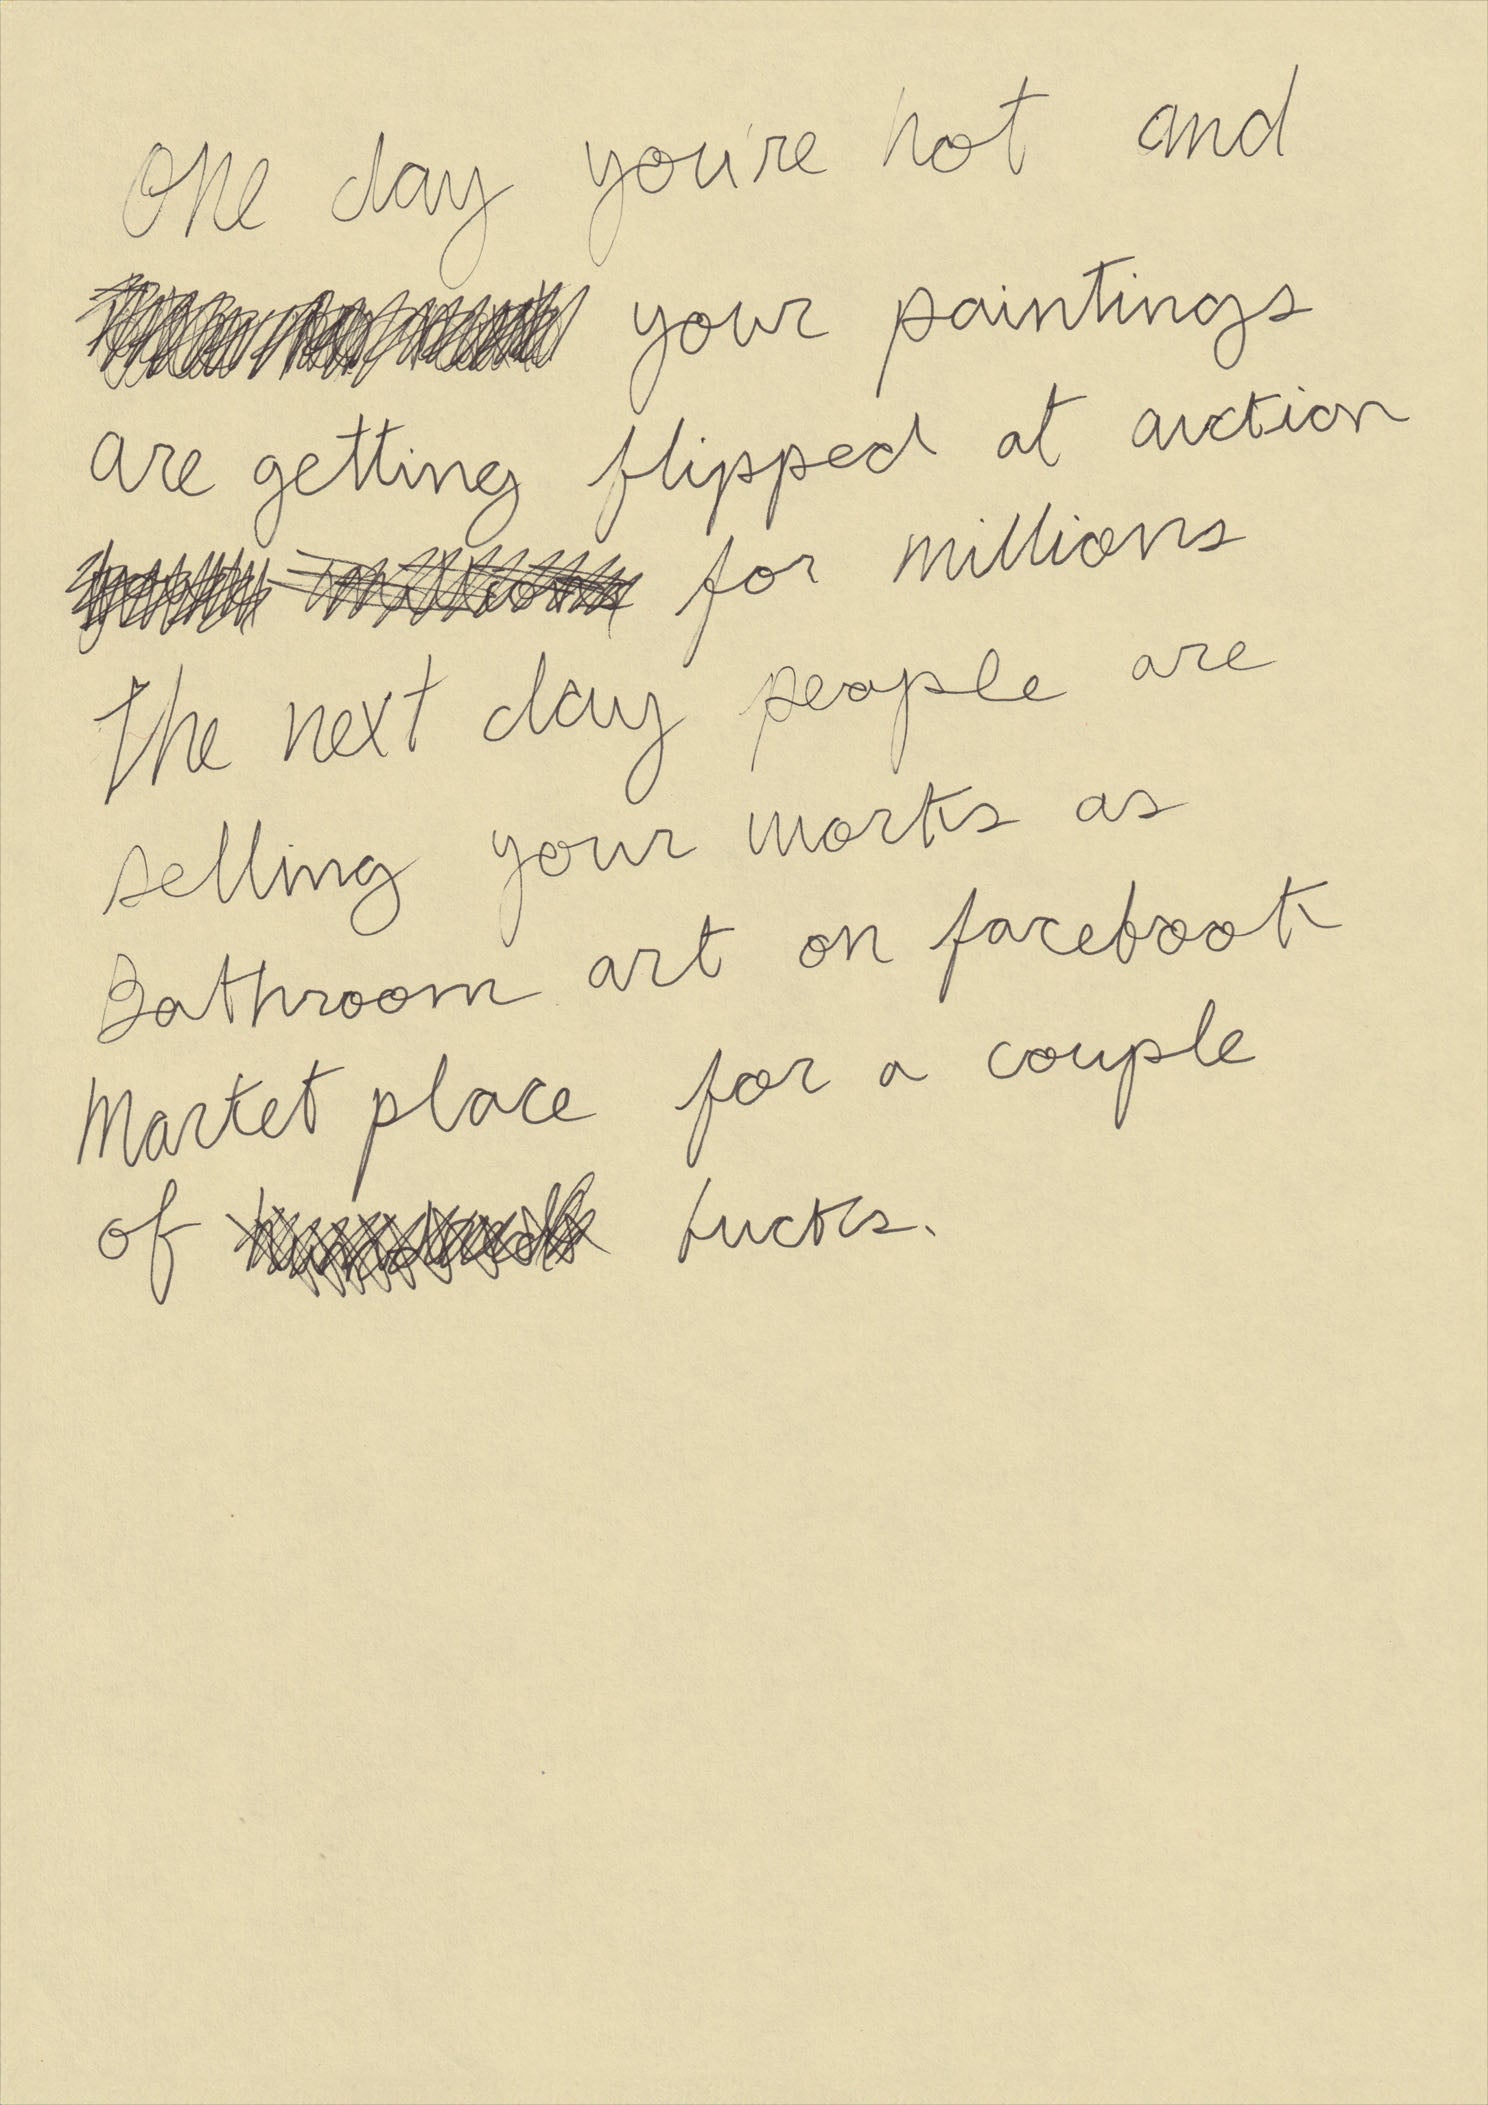 One day you're hot and
your paintings
are getting flipped at auction
millions for millions
The next day people are
selling your works as
Bathroom art on facebook
Market place for a couple
of bucks.